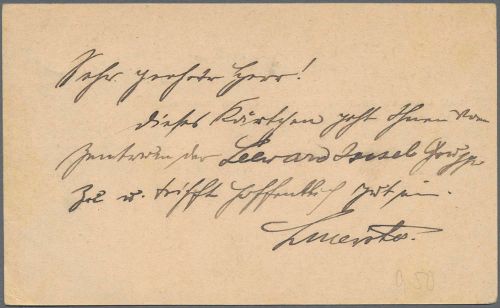 Sehr geehrter Herr!
dieses Kärtchen geht Ihnen vom
Zentrum der Leeward Insel Gruppe
zu u. trifft hoffentlich gut ein.